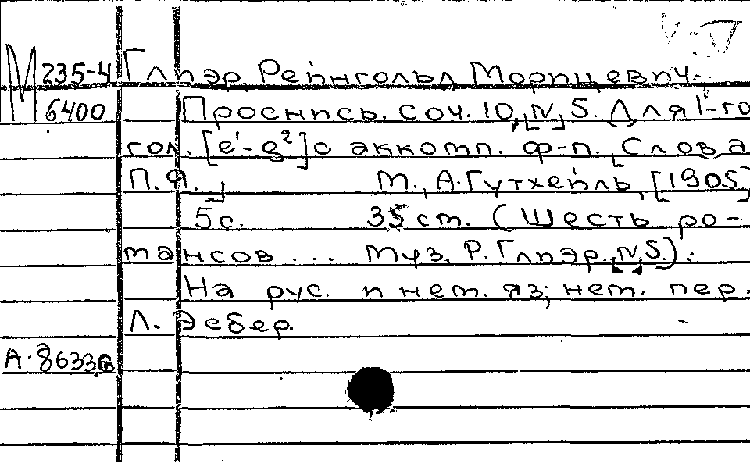 V-IV
М 235-4 Глиэр Рейнгольд Морицевич.
6400 Проснись. Соч. 10, [№] 5. Для 1-го
гол. [e¹-g²] с аккомп. ф-п. [Слова
П.Я.] М., А. Гутхейль, [1905]
5 с. 35 см. (Шесть ро-
мансов ... муз. Р. Глиэр. [№ 5.]).
На рус. и нем. яз; нем. пер.
Л. Эсбер.
А-8633